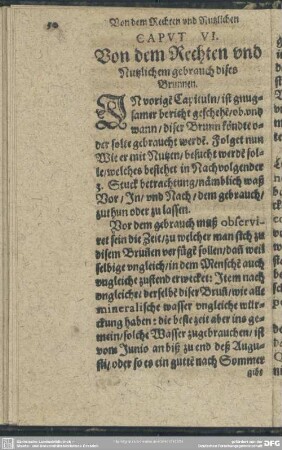 50 Von dem Rechten vnd Nutzlichen
CAPVT VI.
Von dem Rechten vnd
Nutzlichem gebrauch dises
Brunnen.
IN vorigē Capituln/ ist gnug-
samer bericht geschehē/ ob vnd
wann/ diser Brunn köndte o-
der solte gebraucht werdē. Folget nun
Wie er mit Nutzen/ besucht werdē sol-
le/ welches bestehet in Nachvolgender
3. Stuck betrachtung/ nämblich waß
Vor/ In/ vnd Nach/ dem gebrauch/
zuthun oder zu lassen.
Vor dem gebrauch muß observi-
ret sein die Zeit/ zu welcher man sich zu
disem Bruñen verfügē sollen/ dañ weil
selbige vngleich/ in dem Menschē auch
vngleiche zustend erwecket: Item nach
vngleichē/ derselbē diser Bruñ/ wie alle
mineralische wasser vngleiche wür-
ckung haben: die beste zeit aber ins ge-
mein/ solche Wasser zugebrauchen/ ist
vom Junio an biß zu end deß Augu-
sti/ oder so es ein gutē nach Sommer
gibt